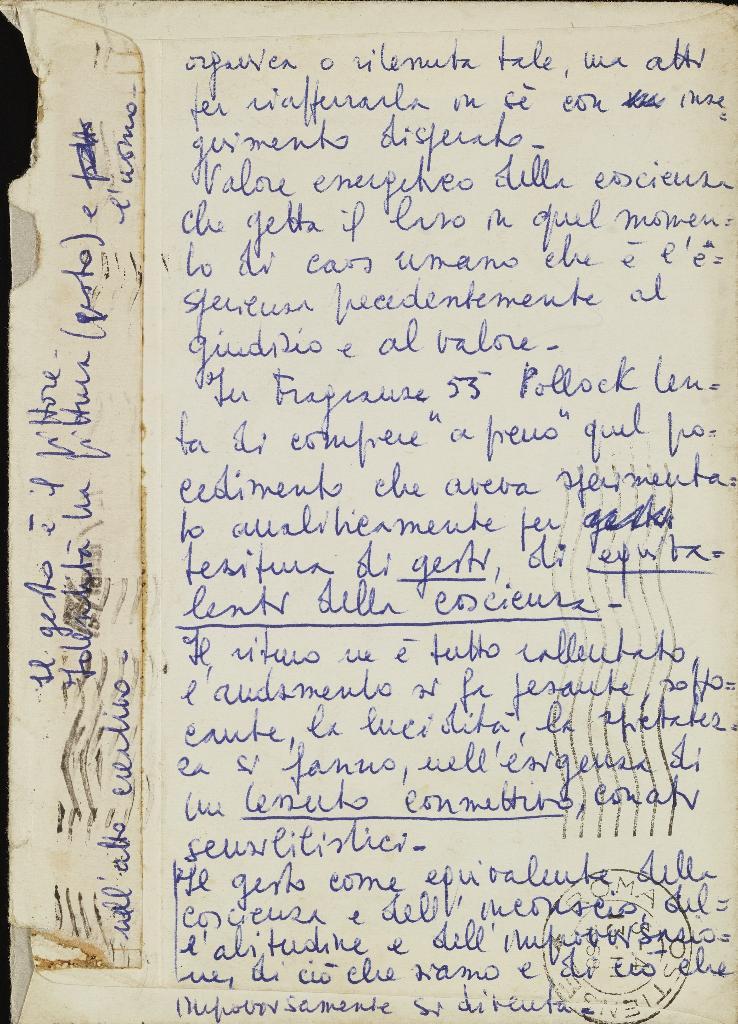 organica o ritenuta tale, ma atti
per riafferrarla in sè con inse=
guimento disperato-
Valore energetico della coscienza
che getta il laso in quel momen=
to di caos umano che è l'e=
sperienza precedentemente al
giudizio e al valore-
In Fragranze 55 Pollock ten=
ta di compiere "a pieno" quel pro=
cedimento che aveva sperimenta=
to analiticamente per gesti
tessitura di gesti, di equiva=
lenti della coscienza-
Il ritmo ne è tutto rallentato,
l'andamento si fa pesante, soffo=
cante, la lucidità, la spietatez=
za si fanno, nell'esigenza di
un tessuto connettivo, conati
sensibilistici-
Il gesto come equivalente della
coscienza e dell'inconscio, del=
l'abitudine e dell'improvvisazio=
ne, di ciò che siamo e di ciò che
improvvisamente si diventa-
Il gesto è il pittore-
Identità tra pittura (gesto) e
l'uomo-
nell'atto creativo-
ROMA
OSTIENSE